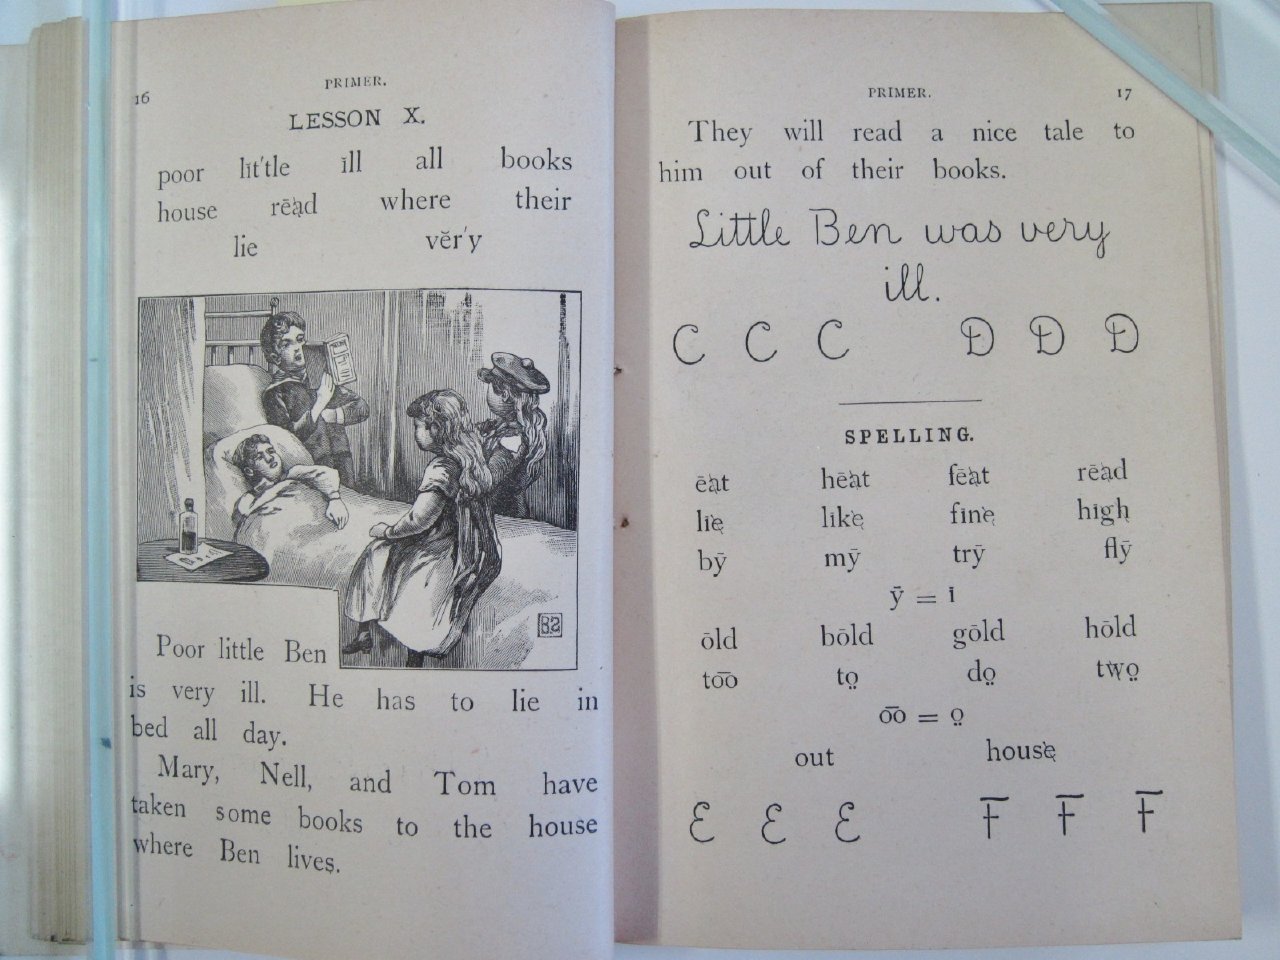 16
PRIMER.
LESSON X.
poor lĭt′tle ĭll all books
house rēad where their
lie vĕr′y
BS
Poor little Ben
is very ill. He has to lie in
bed all day.
Mary, Nell, and Tom have
taken some books to the house
where Ben lives.
PRIMER. 17
They will read a nice tale to
him out of their books.
Little Ben was very
ill.
C C C D D D
SPELLING.
ēat hēat fēat rēad
līe līke fīne hīgh
bȳ mȳ trȳ flȳ
ȳ = ī
ōld bōld gōld hōld
to͞o to̤ do̤ two̤
o͞o = o̤
out house
E E E F F F